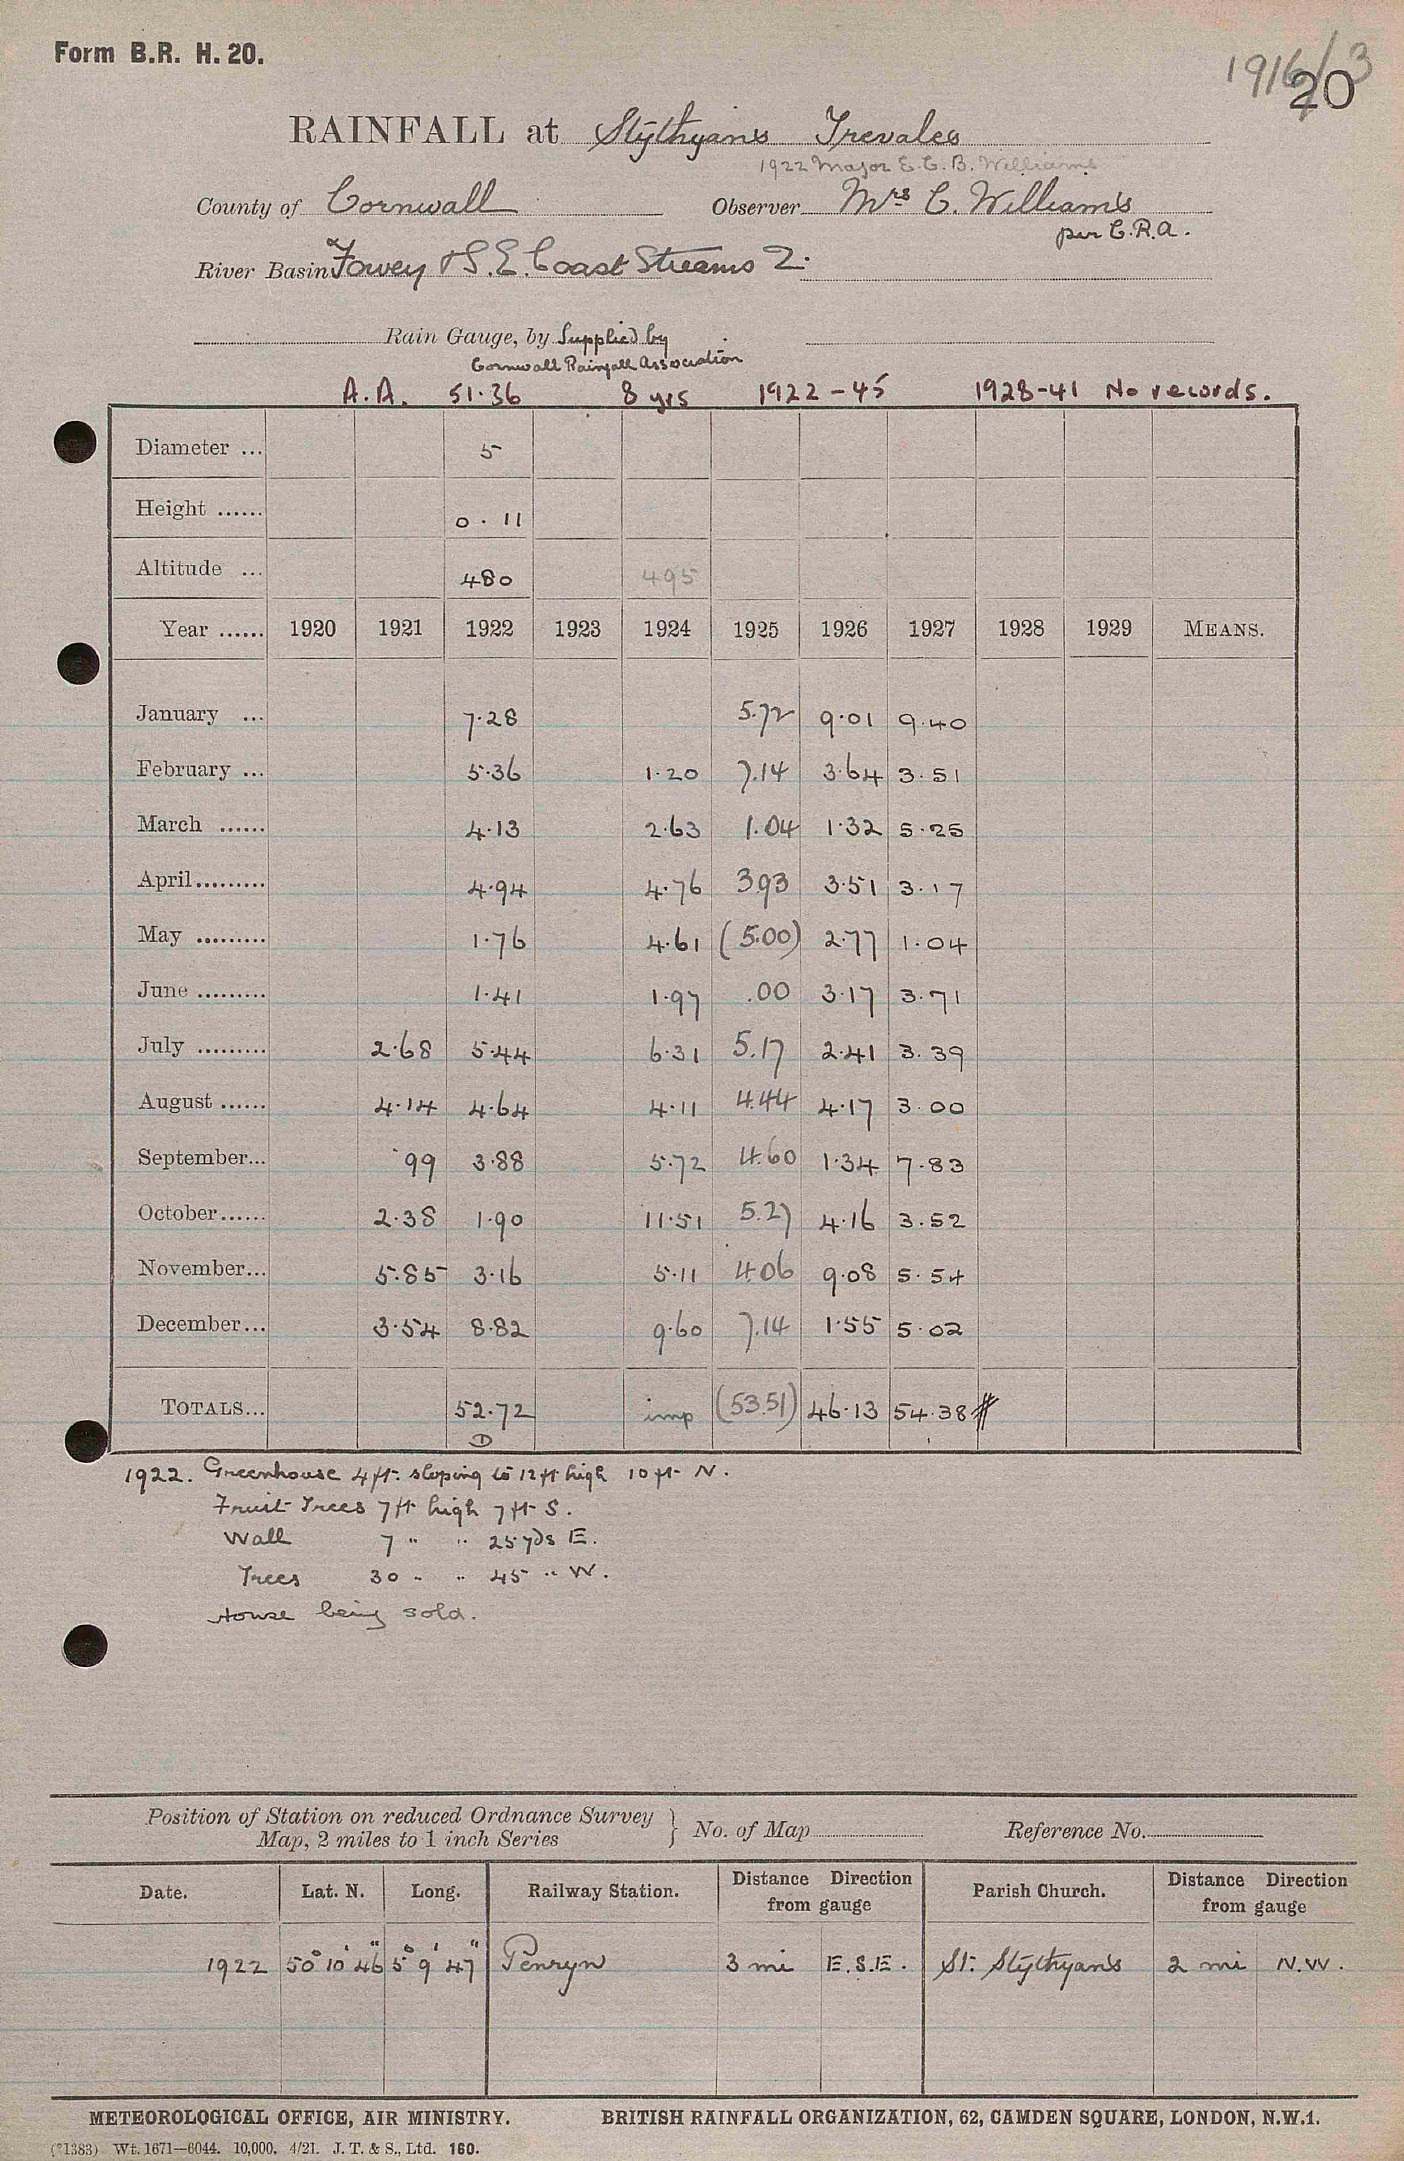 Form B.R. H. 20.
1916/3
20
RAINFALL at Stythyans Trevales
1922 Major E.C.B. Williams
County of Cornwall Observer Mrs C. Williams
per C.R.A.
River Basin Fowey & S.E. Coast Streams 2.
Rain Gauge, by Supplied by
Cornwall Rainfall Association
A.A. 51.36 8 yrs 1922-45 1928-41 No records.
Diameter ... 5
Height ...... 0.11
Altitude ... 480 495
Year ...... 1920 1921 1922 1923 1924 1925 1926 1927 1928 1929 MEANS.
January ... 7.28 5.72 9.01 9.40
February ... 5.36 1.20 7.14 3.64 3.51
March ...... 4.13 2.63 1.04 1.32 5.25
April......... 4.94 4.76 3.93 3.51 3.17
May ......... 1.76 4.61 (5.00) 2.77 1.04
June ......... 1.41 1.97 .00 3.17 3.71
July ......... 2.68 5.44 6.31 5.17 2.41 3.39
August ...... 4.14 4.64 4.11 4.44 4.17 3.00
September... .99 3.88 5.72 4.60 1.34 7.83
October...... 2.38 1.90 11.51 5.27 4.16 3.52
November... 5.85 3.16 5.11 4.06 9.08 5.54
December... 3.54 8.82 9.60 7.14 1.55 5.02
TOTALS... 52.72 imp (53.51) 46.13 54.38 #
D
1922. Greenhouse 4 ft. sloping to 12 ft high 10 ft N.
Fruit Trees 7 ft high 7 ft S.
Wall 7 " " 25 yds E.
Trees 30 " " 45 " W.
House being sold.
Position of Station on reduced Ordnance Survey
Map, 2 miles to 1 inch Series } No. of Map Reference No.
Date. Lat. N. Long. Railway Station. Distance Direction from gauge Parish Church. Distance Direction from gauge
1922 50° 10' 46" 5° 9' 47" Penryn 3 mi E.S.E. St. Stythyans 2 mi N.W.
METEOROLOGICAL OFFICE, AIR MINISTRY. BRITISH RAINFALL ORGANIZATION, 62, CAMDEN SQUARE, LONDON, N.W.1.
(*1383) Wt. 1671—6044. 10,000. 4/21. J. T. & S., Ltd. 160.